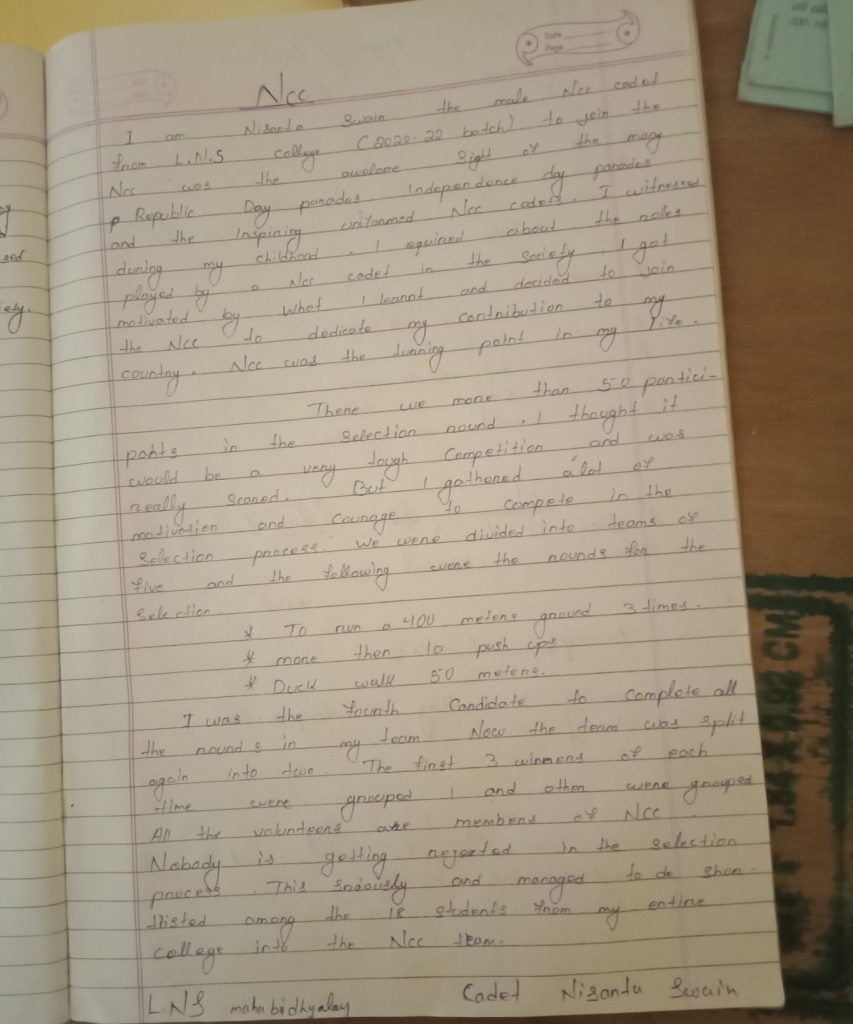 Date
Page
Ncc
I am Nisanta Swain the male Ncc cadet
from L.N.S college (2020-22 batch) to join the
Ncc was the awelome Sight of the many
Republic Day parades. Independence day parades
and the Inspiring uniformed Ncc cadets. I witnessed
during my childhood. I equined about the roles
played by a Ncc cadet in the society. I got
motivated by What I learnt and decided to join
the Ncc to dedicate my contribution to my
country. Ncc was the turning point in my life.
There we more than 50 partici-
pants in the Selection round. I thought it
would be a very tough Competition and was
really Scared. But I gathered a lot of
motivation and Courage to compete in the
Selection process. We were divided into teams of
five and the following were the rounds for the
Selection.
* To run a 400 meters ground 3 times.
* more then 10 push ups
* Duck walk 50 meters.
I was the fourth Candidate to Complete all
the rounds in my team Now the team was split
again into two. The first 3 winners of each
time were grouped 1 and other were grouped
All the volunteers are members of Ncc.
Nobody is getting rejected In the selection
process. This and managed to de shor-
tlisted among the 18 students from my entire
college into the Ncc team.
L.NS mahabidhyalay Cadet Nisanta Swain
sed
iety.
1.84 X 0.92 CM